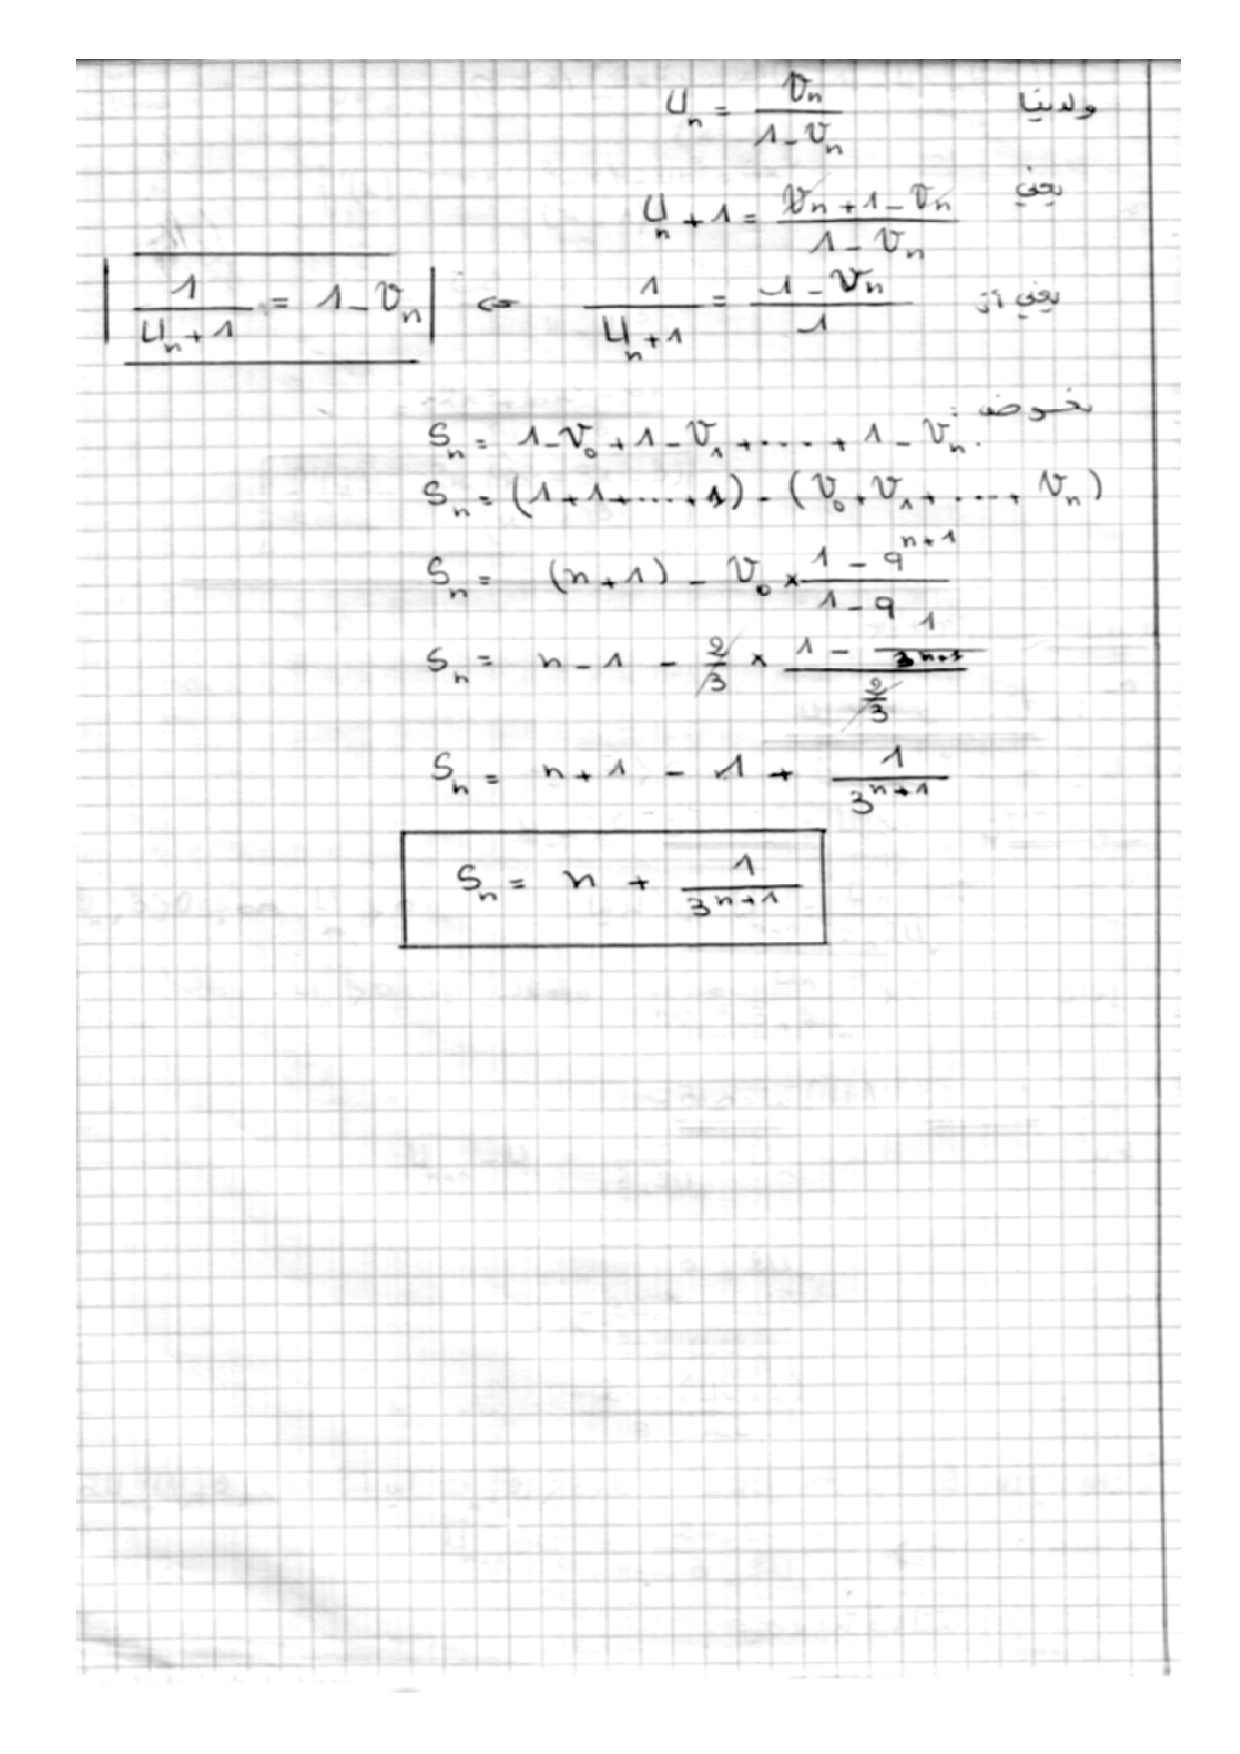 ولدينا U_n = V_n / (1 - V_n)
يعني U_n + 1 = (V_n + 1 - V_n) / (1 - V_n)
يعني أن 1 / (U_n + 1) = (1 - V_n) / 1 ⇔ 1 / (U_n + 1) = 1 - V_n
نعوض: S_n = 1 - V_0 + 1 - V_1 + .... + 1 - V_n.
S_n = (1 + 1 + .... + 1) - (V_0 + V_1 + .... + V_n)
S_n = (n + 1) - V_0 × (1 - q^{n+1}) / (1 - q)
S_n = n - 1 - 2/3 × (1 - 1/3^{n+1}) / (2/3)
S_n = n + 1 - 1 + 1 / 3^{n+1}
S_n = n + 1 / 3^{n+1}